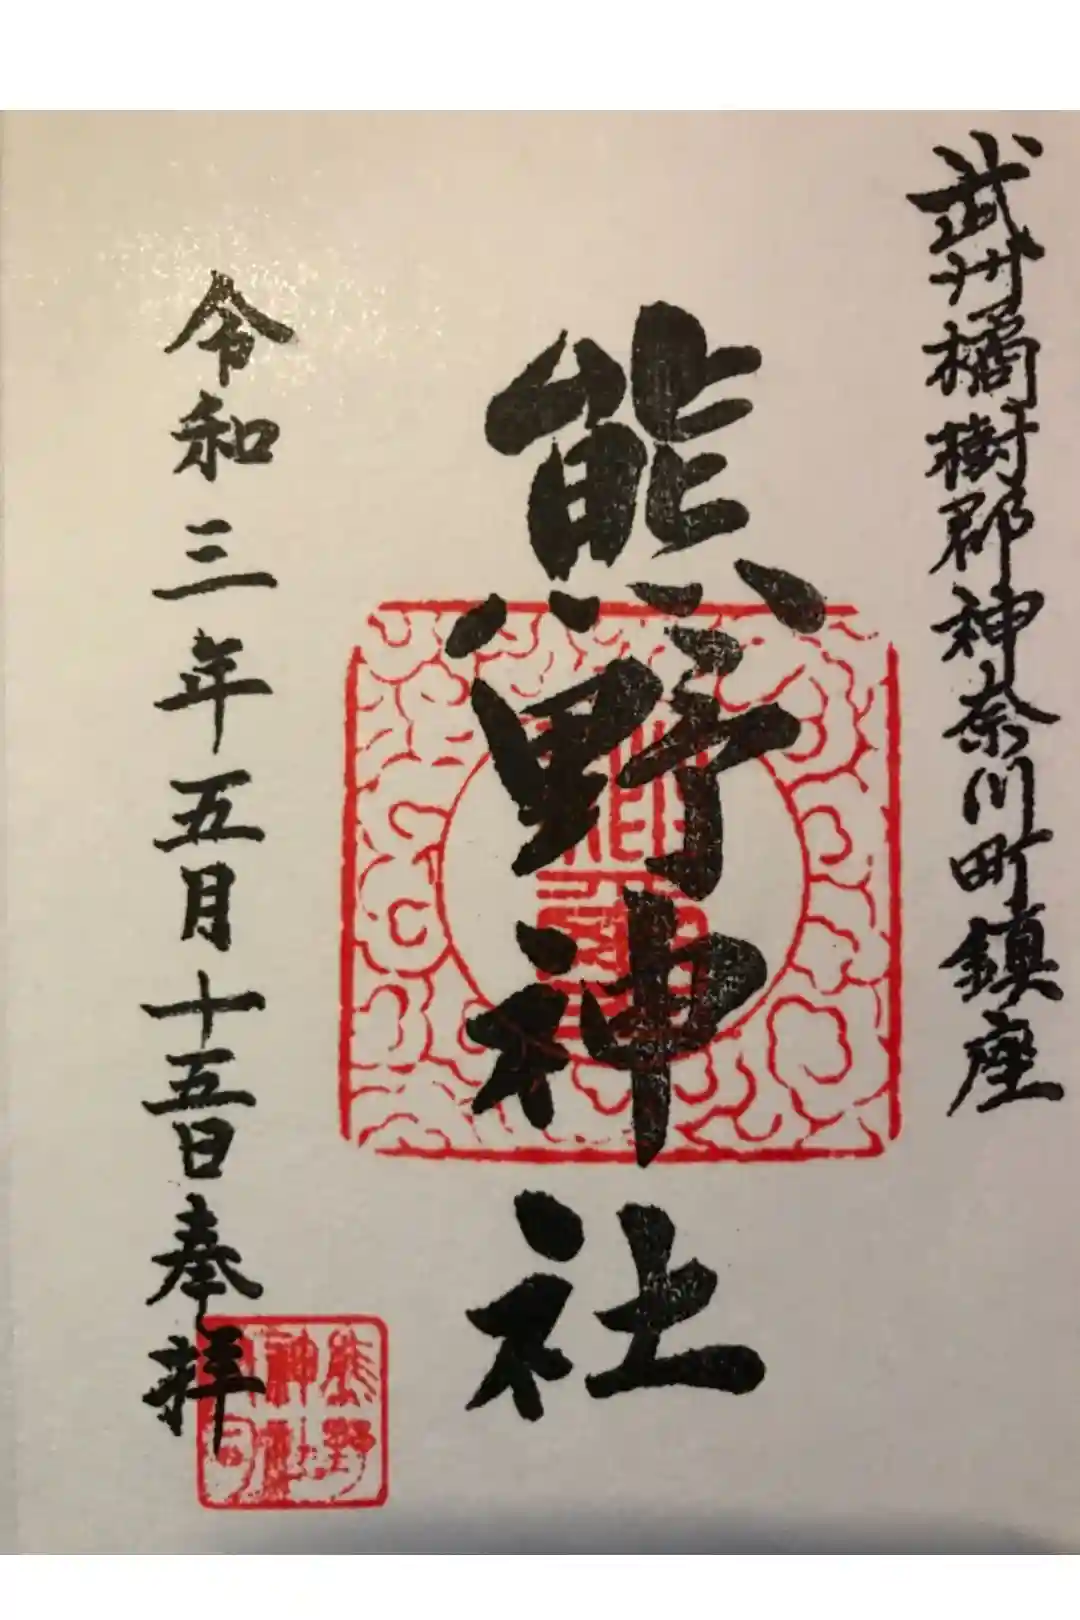 武州橘樹郡神奈川町鎮座
熊野神社
令和三年五月十五日奉拝
熊野
神社